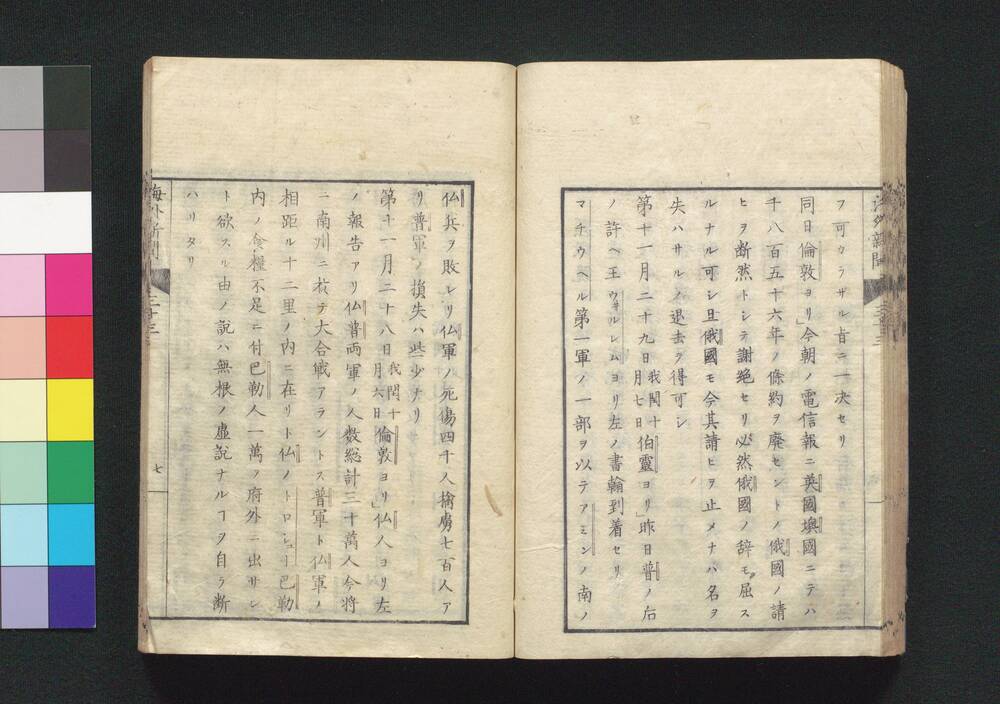 フ可カラザル旨ニ一决セリ
同日倫敦ヨリ」今朝ノ電信報ニ英國墺國ニテハ
千八百五十六年ノ條約ヲ廢セントノ俄國ノ請
ヒヲ断然トシテ謝絶セリ必然俄國ノ辞モ屈ス
ルナル可シ且俄國モ今其請ヒヲ止メナハ名ヲ
失ハサルノ退去ヲ得可シ
第十一月二十九日我閏十月七日伯靈ヨリ」昨日普ノ后
ノ許ヘ王ウヰルレムヨリ左ノ書翰到着セリ
マチウヘル第一軍ノ一部ヲ以テアミンノ南ノ
仏兵ヲ敗レリ仏軍ノ死傷四千人擒虜七百人ア
リ普軍ノ損失ハ些少ナリ
第十一月二十八日我閏十月六日倫敦ヨリ」仏人ヨリ左
ノ報告アリ仏普両軍ノ人数総計三十萬人今将
ニ南州ニ於テ大合戦アラントス普軍ト仏軍ノ
相距ル十二里ノ内ニ在リト仏ノトロシュー巴勒
内ノ食糧不足ニ付巴勒人一萬ヲ府外ニ出サン
ト欲スル由ノ説ハ無根ノ虚説ナルヿヲ自ラ断
ハリタリ
海外新聞
三十三
七